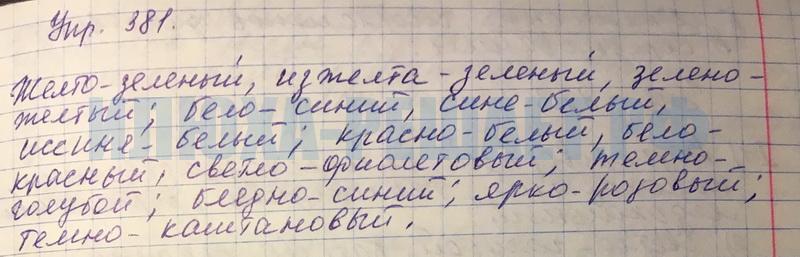 Упр. 381.
Желто-зеленый, изжелта-зеленый, зелено-
желтый; бело-синий, сине-белый,
иссиня-белый; красно-белый, бело-
красный, светло-фиолетовый; темно-
голубой; бледно-синий; ярко-розовый;
темно-каштановый.